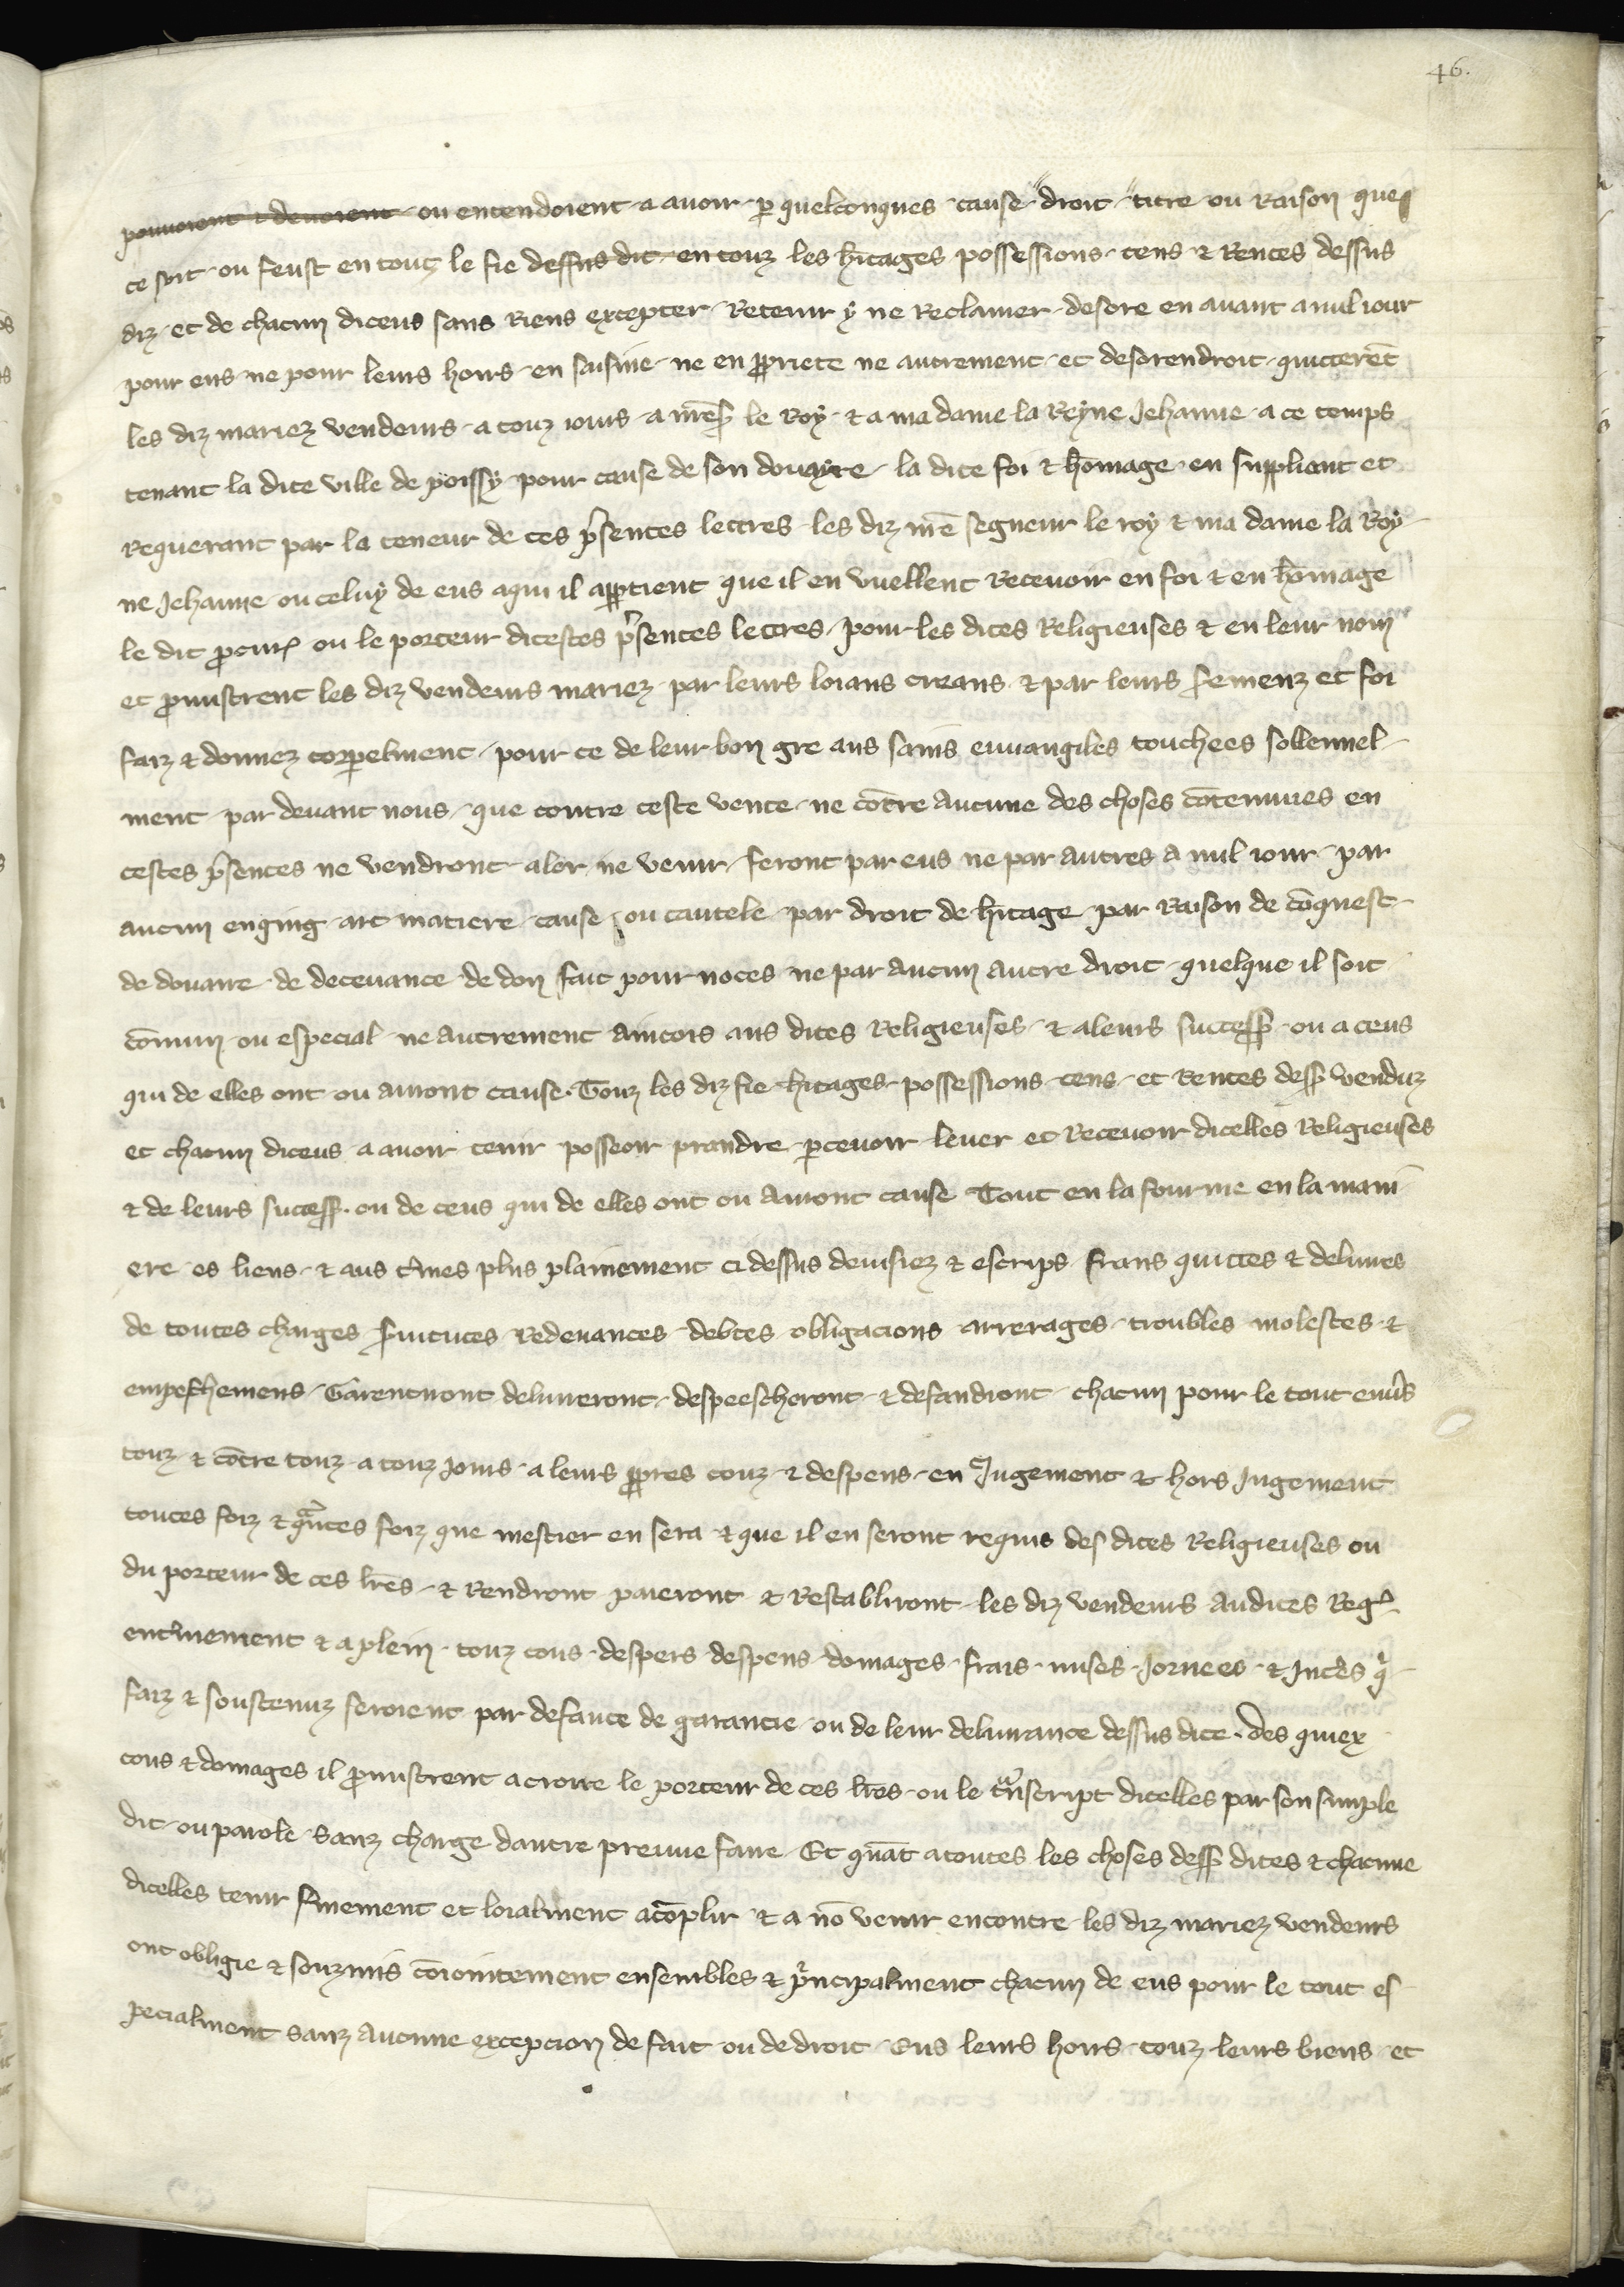 46.
pouvoient & devoient ou entendoient a avoir p quelconques cause droit titre ou Raison que
ce soit ou feust en touz le fie dessus dit en touz les hitages possessions cens & Rentes dessus
diz et de chacun diceus sans Riens excepter Retenir y ne Reclamer desore en avant a nul iour
pour eus ne pour leurs hoirs en saisine ne en ppriete ne autrement et desorendroit quitterēt
les diz mariez vendeurs a touz iours a mes le Roy & a ma dame la Reyne Jehanne a ce temps
tenant la dite ville de poissy pour cause de son douayre la dite foi & homage en suppliant et
Requerant par la teneur de ces psentes lettres les diz mē segneur le roy & ma dame la Roy
ne Jehanne ou celuy de eus a qui il apptient que il en vuellent Recevoir en foi & en homage
le dit pcur ou le porteur dicestes psentes lettres pour les dites Religieuses & en leur nom
et pmistrent les diz vendeurs mariez par leurs loians creans & par leurs semenz et foi
faiz & donnez corpelment pour ce de leur bon gre aus sains euvangiles touchees sollennel
ment par devant nous que contre ceste vente ne cōtre aucune des choses cōtenues en
cestes psentes ne vendront aler ne venir feront par eus ne par autres a nul iour par
aucun enging art matiere cause ou cautele par droit de hitage par Raison de cōquest
de douaire de decevance de don fait pour noces ne par aucun autre droit quelque il soit
cōmun ou especial ne autrement aincois aus dites Religieuses & a leurs success ou a ceus
qui de elles ont ou auront cause. Touz les diz fie hitages possessions cens et Rentes dess venduz
et chacun diceus a avoir tenir posseoir prandre pcevoir lever et Recevoir dicelles Religieuses
& de leurs success. ou de ceus qui de elles ont ou auront cause Tout en la fourme en la mani
ere es liens & aus tmes plus plainement ci dessus devisiez & escrips frans quittes & delivres
de toutes charges svitutes Redevances debtes obligacions arrerages troubles molestes &
empeschemens Garentiront deliverront despeescheront & defandront chacun pour le tout envs
touz & cōtre touz a touz jours a leurs ppres couz & despens en Jugement & hors Jugement
toutes foiz & qantes foiz que mestier en sera & que il en seront requis des dites Religieuses ou
du porteur de ces lres & Rendront paieront & Restabliront les diz vendeurs audites Reg
entinement & a plein touz cous despers despens domages frais mises Jornees & Intes q
faiz & soustenuz seroient par defaute de garantie ou de leur delivrance dessus dite. des quiex
cous & domages il pmistrent a croire le porteur de ces lres ou le tanscript dicelles par son simple
dit ou parole sanz charge dautre preuve faire Et quāt a toutes les choses dess dites & chacune
dicelles tenir fmement et loialment acōplir & a nō venir encontre les diz mariez vendeurs
ont obligie & souzmis cōiointement ensembles & pncipalment chacun de eus pour le tout es
pecialment sanz aucune excepcion de fait ou de droit Eus leurs hoirs touz leurs biens et